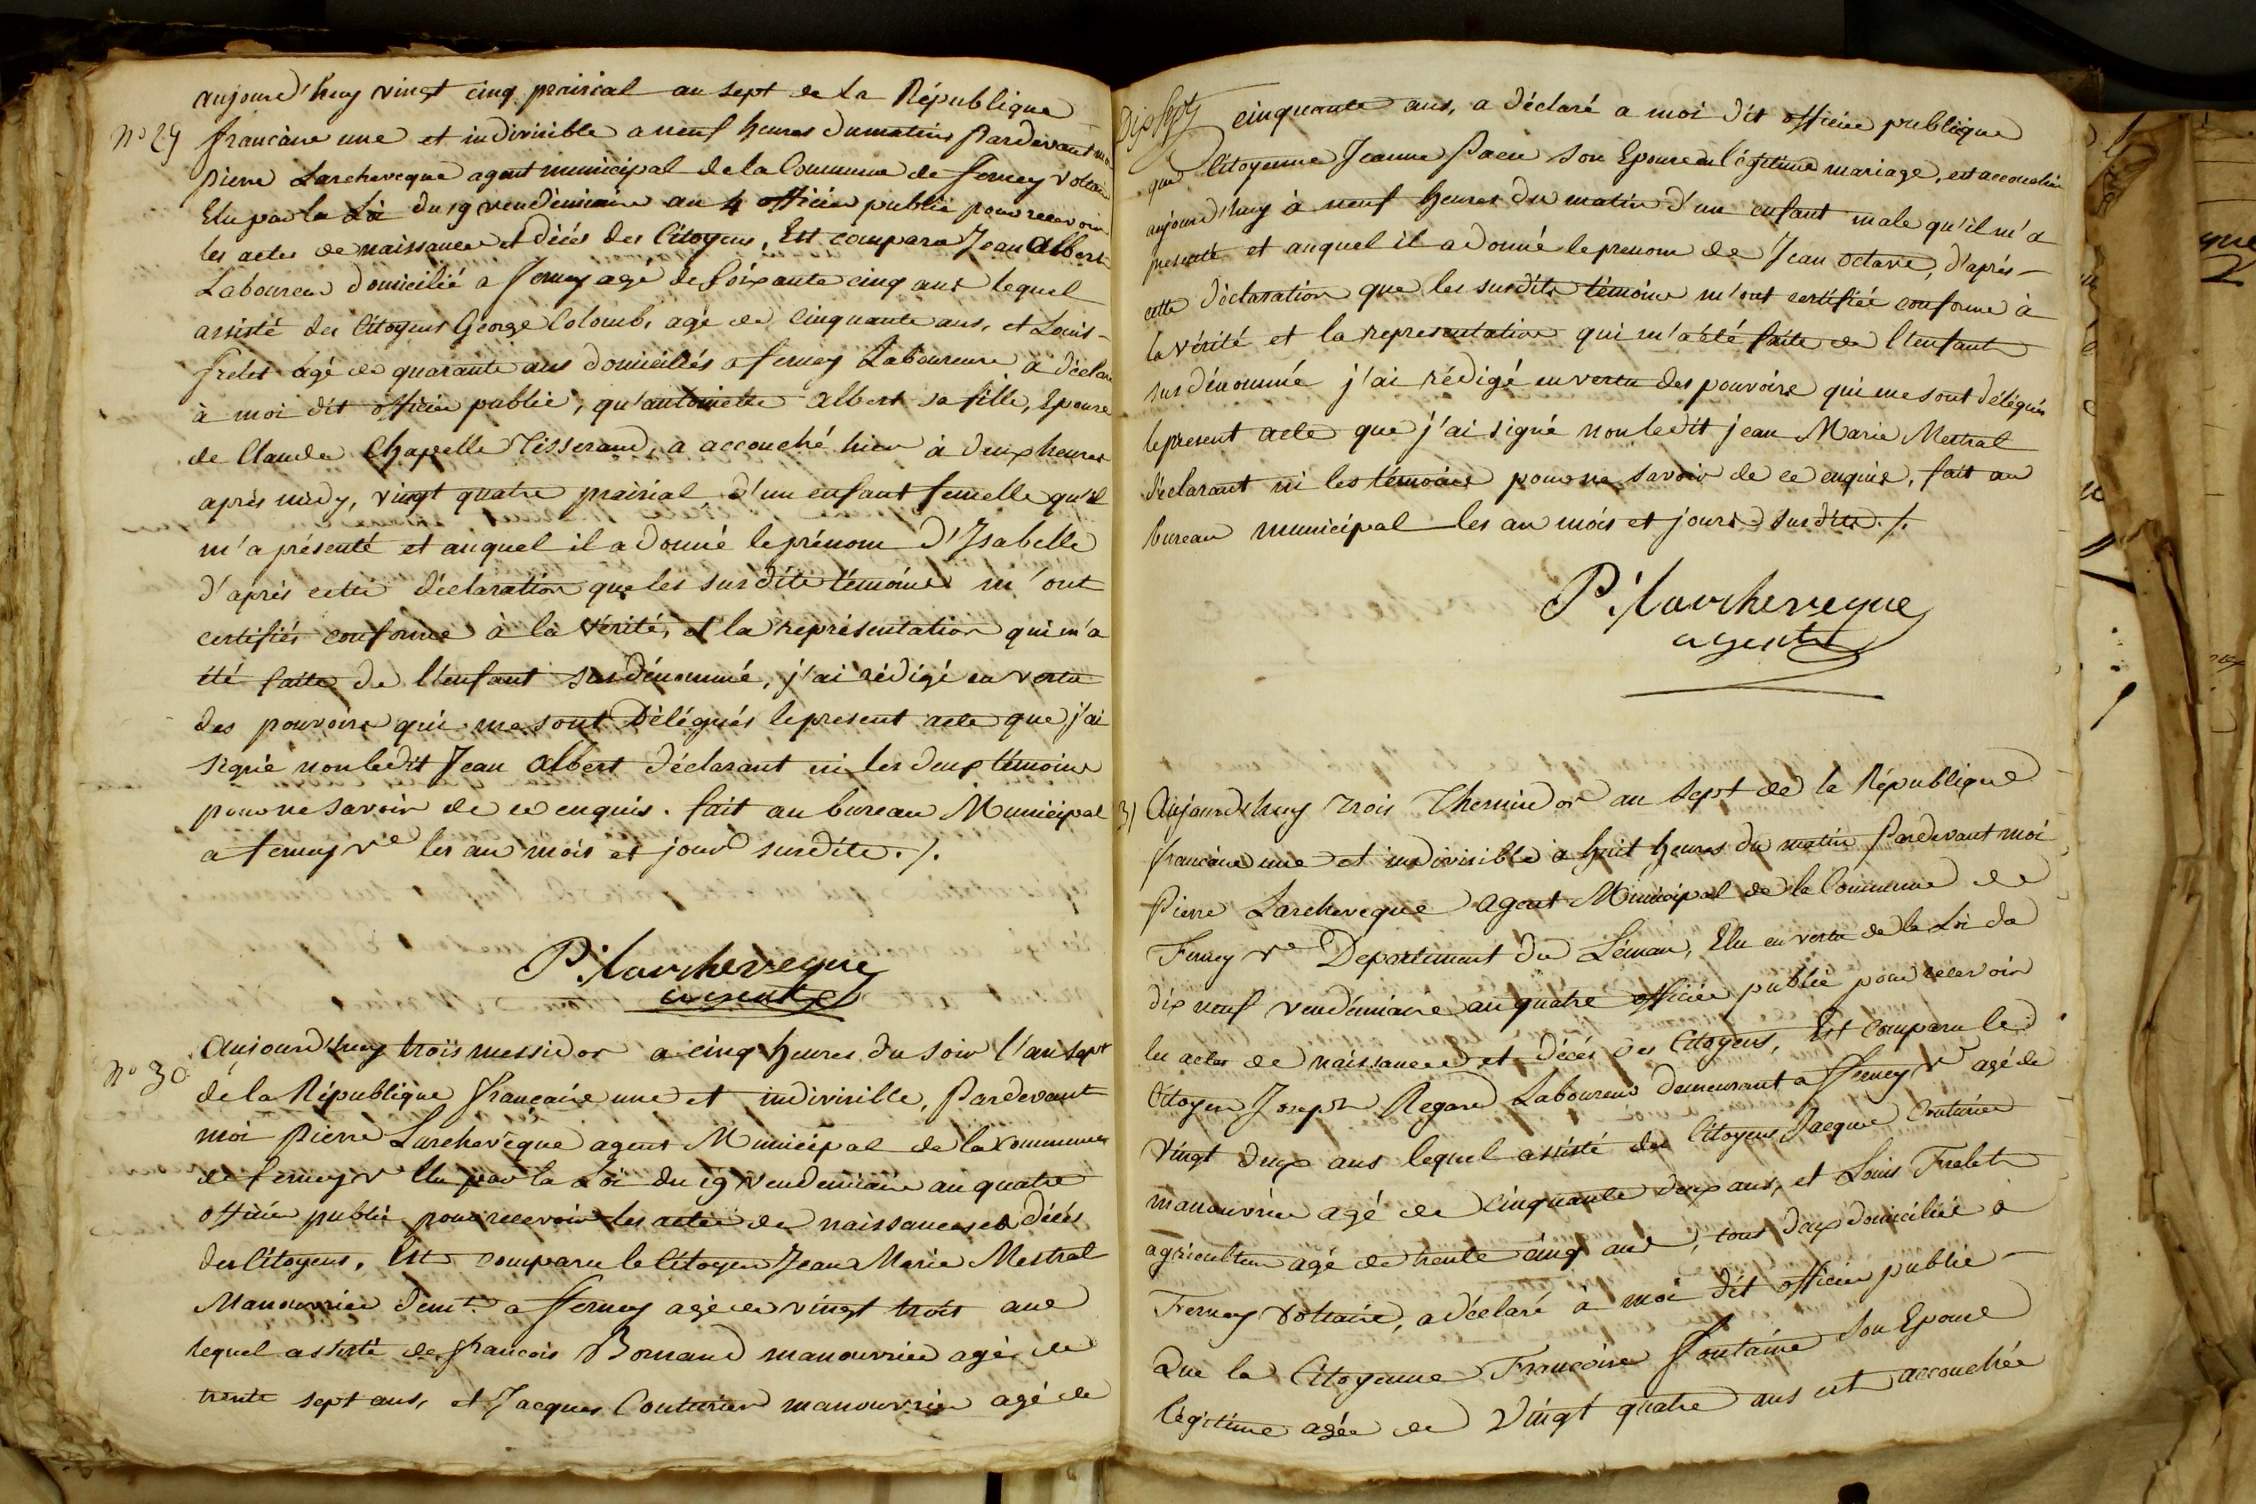 aujourd'huy vingt cinq prairial an sept de la République
N° 29 francaise une et indivisible a neuf heures du matin Pardevant moi
pierre Larcheveque agent municipal de la Commune de ferney voltaire
Elu par la Loi du 19 vendemiaire an 4 officier public pour recevoir
les actes de naissances et décés des Citoyens, Est comparu Jean Albert
Laboureur domicilié a ferney agé de soixante cinq ans lequel
assisté des Citoyens George Colomb, agé de cinquante ans, et Louis-
frelet âgé de quarante ans domiciliés a ferney Laboureurs a déclaré
à moi dit officier public, qu'antoinette Albert sa fille, Epouse
de Claude Chapelle Tisserand, a accouché hier à deux heures
après midy, vingt quatre prairial, d'un enfant femelle qu'il
m'a présenté et auquel il a donné le prénom d'Isabelle
d'après cette déclaration que les susdits témoins m'ont
certifiés conforme à la vérité, et la représentation qui m'a
été faite de l'enfant susdénommé, j'ai rédigé en vertu
des pouvoirs qui me sont délégués le present acte que j'ai
signé non ledit Jean Albert déclarant ni les deux témoins
pour ne savoir de ce enquis. fait au bureau Municipal
a ferney Ve les an mois et jour susdits ./.
P: Larcheveque
agent
N° 30 Aujourd'huy trois messidor a cinq heures du soir l'an sept
de la République francaise une et indivisible, Pardevant
moi pierre Larcheveque agent Municipal de la commune
de ferney Ve Elu par la Loi du 19 vendemiaire an quatre
officier public pour recevoir les actes de naissances et décés
des Citoyens. Est comparu le Citoyen Jean Marie Mestral
Manouvrier demt a ferney agé de vingt trois ans
lequel assisté de francois Bornand manouvrier agé de
trente sept ans, et Jacques Couturier manouvrier agé de
Dix Sept
cinquante ans, a déclaré a moi dit officier publique
que Citoyenne Jeanne son Epouse en légitime mariage, est accouchée
aujourd'huy à neuf heures du matin d'un enfant male qu'il m'a
presenté et auquel il a donné le prenom de Jean octave, d'après-
cette déclaration que les susdits témoins m'ont certifiée conforme à
la vérité et la representation qui m'a été faite de l'enfant
susdénommé j'ai rédigé en vertu des pouvoirs qui me sont délégués
le present acte que j'ai signé non ledit jean Marie Mestral
déclarant ni les témoins pour ne savoir de ce enquis, fait au
bureau municipal les an mois et jours susdits ./.
P: Larcheveque
agent
31 Aujourd'huy trois Thermidor an sept de la République
francaise une et indivisible a huit heures du matin Pardevant moi
Pierre Larcheveque agent Municipal de la Commune de
Ferney Ve Departement du Léman, Elu en vertu de la Loi du
dix neuf vendémiaire an quatre officier public pour recevoir
les actes de naissances et décés des Citoyens, Est comparu le
Citoyen Joseph Regard Laboureur demeurant a fferney Ve agé de
vingt deux ans lequel assisté des Citoyens Jacque Couturier
manouvrier agé de cinquante deux ans, et Louis Frelet
agriculteur agé de trente cinq ans, tous deux domiciliés à
Ferney voltaire, a déclaré à moi dit officier public-
Que la Citoyenne Françoise Fontaine son Epouse
légitime agée de vingt quatre ans est accouchée